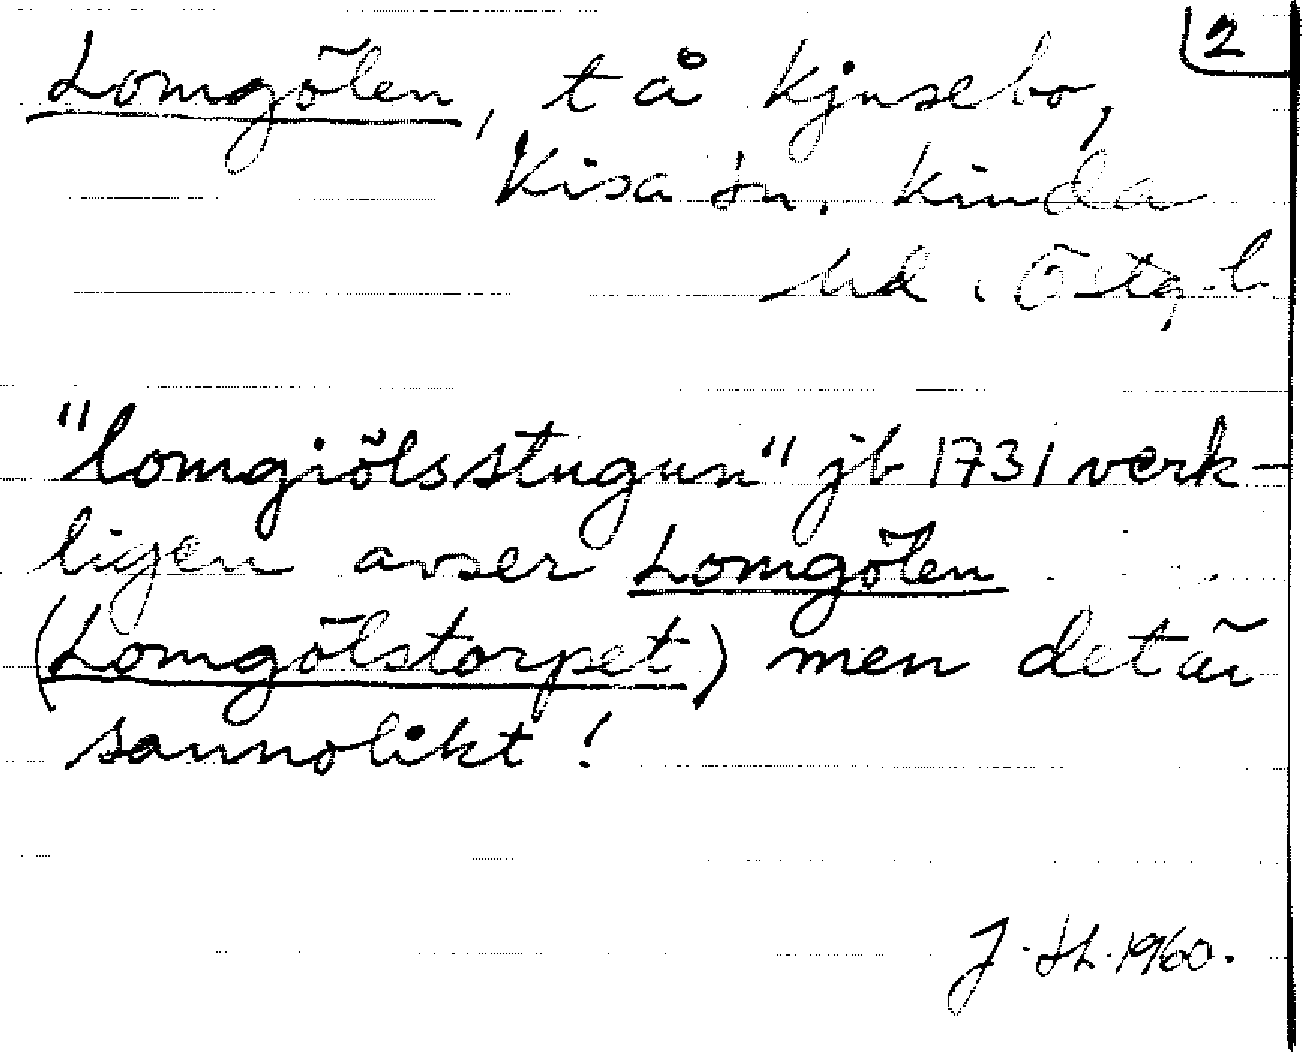 2
Lomgölen, t å Kjusebo,
Kisa sn. Kinda
hd. Östg. l.
"Lomgiölsstugun" jb 1731 verk-
ligen avser Lomgölen
(Lomgölstorpet) men det är
sannolikt!
J. Sh. 1960.